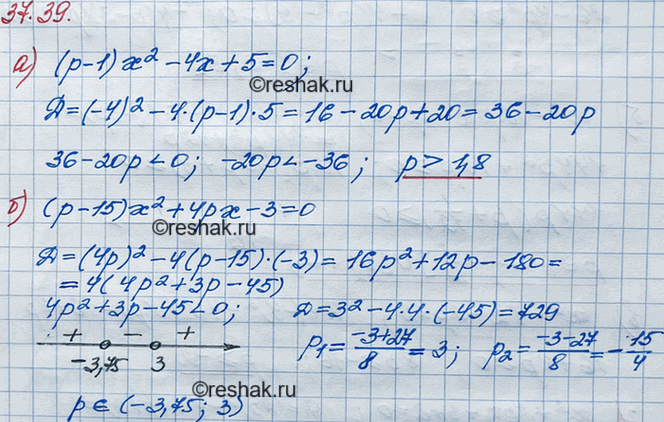 37.39.
а) (p-1)x² - 4x + 5 = 0;
©reshak.ru
Д = (-4)² - 4·(p-1)·5 = 16 - 20p + 20 = 36 - 20p
36 - 20p < 0; -20p < -36; p > 1,8
б) (p-15)x² + 4px - 3 = 0
©reshak.ru
Д = (4p)² - 4(p-15)·(-3) = 16p² + 12p - 180 =
= 4(4p² + 3p - 45)
4p² + 3p - 45 < 0; Д = 3² - 4·4·(-45) = 729
+ - + p₁ = (-3+27)/8 = 3; p₂ = (-3-27)/8 = -15/4
-3,75 3
©reshak.ru
p ∈ (-3,75; 3)